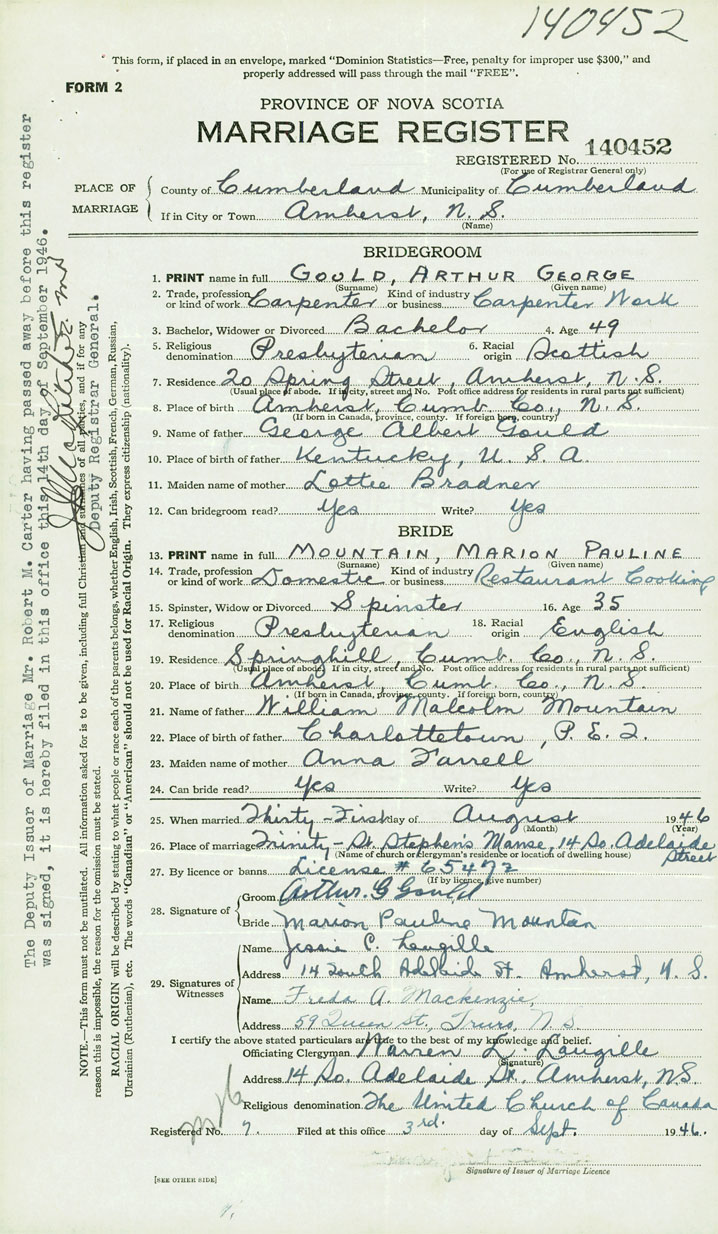 140452
This form, if placed in an envelope, marked "Dominion Statistics—Free, penalty for improper use $300," and
properly addressed will pass through the mail "FREE".
FORM 2
PROVINCE OF NOVA SCOTIA
MARRIAGE REGISTER
REGISTERED No. 140452
(For use of Registrar General only)
PLACE OF MARRIAGE
County of Cumberland Municipality of Cumberland
If in City or Town Amherst, N. S.
(Name)
BRIDEGROOM
1. PRINT name in full GOULD, ARTHUR GEORGE
(Surname) (Given name)
2. Trade, profession or kind of work Carpenter Kind of industry or business Carpenter Work
3. Bachelor, Widower or Divorced Bachelor 4. Age 49
5. Religious denomination Presbyterian 6. Racial origin Scottish
7. Residence 20 Spring Street, Amherst, N. S.
(Usual place of abode. If in city, street and No. Post office address for residents in rural parts not sufficient)
8. Place of birth Amherst, Cumb. Co., N. S.
(If born in Canada, province, county. If foreign born, country)
9. Name of father George Albert Gould
10. Place of birth of father Kentucky, U. S. A.
11. Maiden name of mother Lottie Bradner
12. Can bridegroom read? Yes Write? Yes
BRIDE
13. PRINT name in full MOUNTAIN, MARION PAULINE
(Surname) (Given name)
14. Trade, profession or kind of work Domestic Kind of industry or business Restaurant Cooking
15. Spinster, Widow or Divorced Spinster 16. Age 35
17. Religious denomination Presbyterian 18. Racial origin English
19. Residence Springhill, Cumb. Co., N. S.
(Usual place of abode. If in city, street and No. Post office address for residents in rural parts not sufficient)
20. Place of birth Amherst, Cumb. Co., N. S.
(If born in Canada, province, county. If foreign born, country)
21. Name of father William Malcolm Mountain
22. Place of birth of father Charlottetown, P. E. I.
23. Maiden name of mother Anna Farrell
24. Can bride read? Yes Write? Yes
25. When married Thirty-First day of August 1946
(Month) (Year)
26. Place of marriage Trinity-St. Stephen's Manse, 14 So. Adelaide Street
(Name of church or clergyman's residence or location of dwelling house)
27. By licence or banns License # 65472
(If by licence, give number)
28. Signature of
Groom Arthur. G Gould
Bride Marion Pauline Mountain
29. Signatures of Witnesses
Name Jessie C. Langille
Address 14 South Adelaide St. Amherst, N. S.
Name Freda A. Mackenzie,
Address 59 Queen St., Truro, N. S.
I certify the above stated particulars are true to the best of my knowledge and belief.
Officiating Clergyman Warren L. Langille
(Signature)
Address 14 So. Adelaide St. Amherst, N.S.
Religious denomination The United Church of Canada
Registered No. 7. Filed at this office 3rd. day of Sept. 1946.
Signature of Issuer of Marriage Licence
[SEE OTHER SIDE]
The Deputy Issuer of Marriage Mr. Robert M. Carter having passed away before this register
was signed, it is hereby filed in this office this 14th day of September 1946.
Deputy Registrar General.
NOTE.—This form must not be mutilated. All information asked for is to be given, including full Christian and surnames of all parties, and if for any
reason this is impossible, the reason for the omission must be stated.
RACIAL ORIGIN will be described by stating to what people or race each of the parents belongs, whether English, Irish, Scottish, French, German, Russian,
Ukrainian (Ruthenian), etc. The words "Canadian" or "American" should not be used for Racial Origin. They express citizenship (nationality).